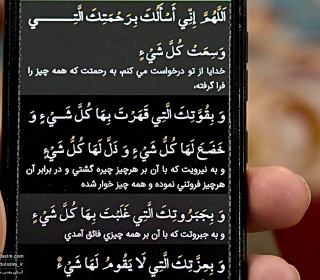 اَللّٰهُمَّ اِنِّي أَسْأَلُكَ بِرَحْمَتِكَ الَّتِــــي
وَسِعَتْ كُلَّ شَيْءٍ
خدایا از تو درخواست می کنم، به رحمتت که همه چیز را
فرا گرفته،
وَ بِقُوَّتِكَ الَّتِي قَهَرْتَ بِهَا كُلَّ شَيْءٍ وَ
خَضَعَ لَهَا كُلُّ شَيْءٍ وَ ذَلَّ لَهَا كُلُّ شَيْءٍ
و به نیرویت که با آن بر هرچیز چیره گشتی و در برابر آن
هرچیز فروتنی نموده و همه چیز خوار شده
وَ بِجَبَرُوتِكَ الَّتِي غَلَبْتَ بِهَا كُلَّ شَيْءٍ
و به جبروتت که با آن بر همه چیزی فائق آمدی
وَ بِعِزَّتِكَ الَّتِي لَا يَقُومُ لَهَا شَيْءٌ